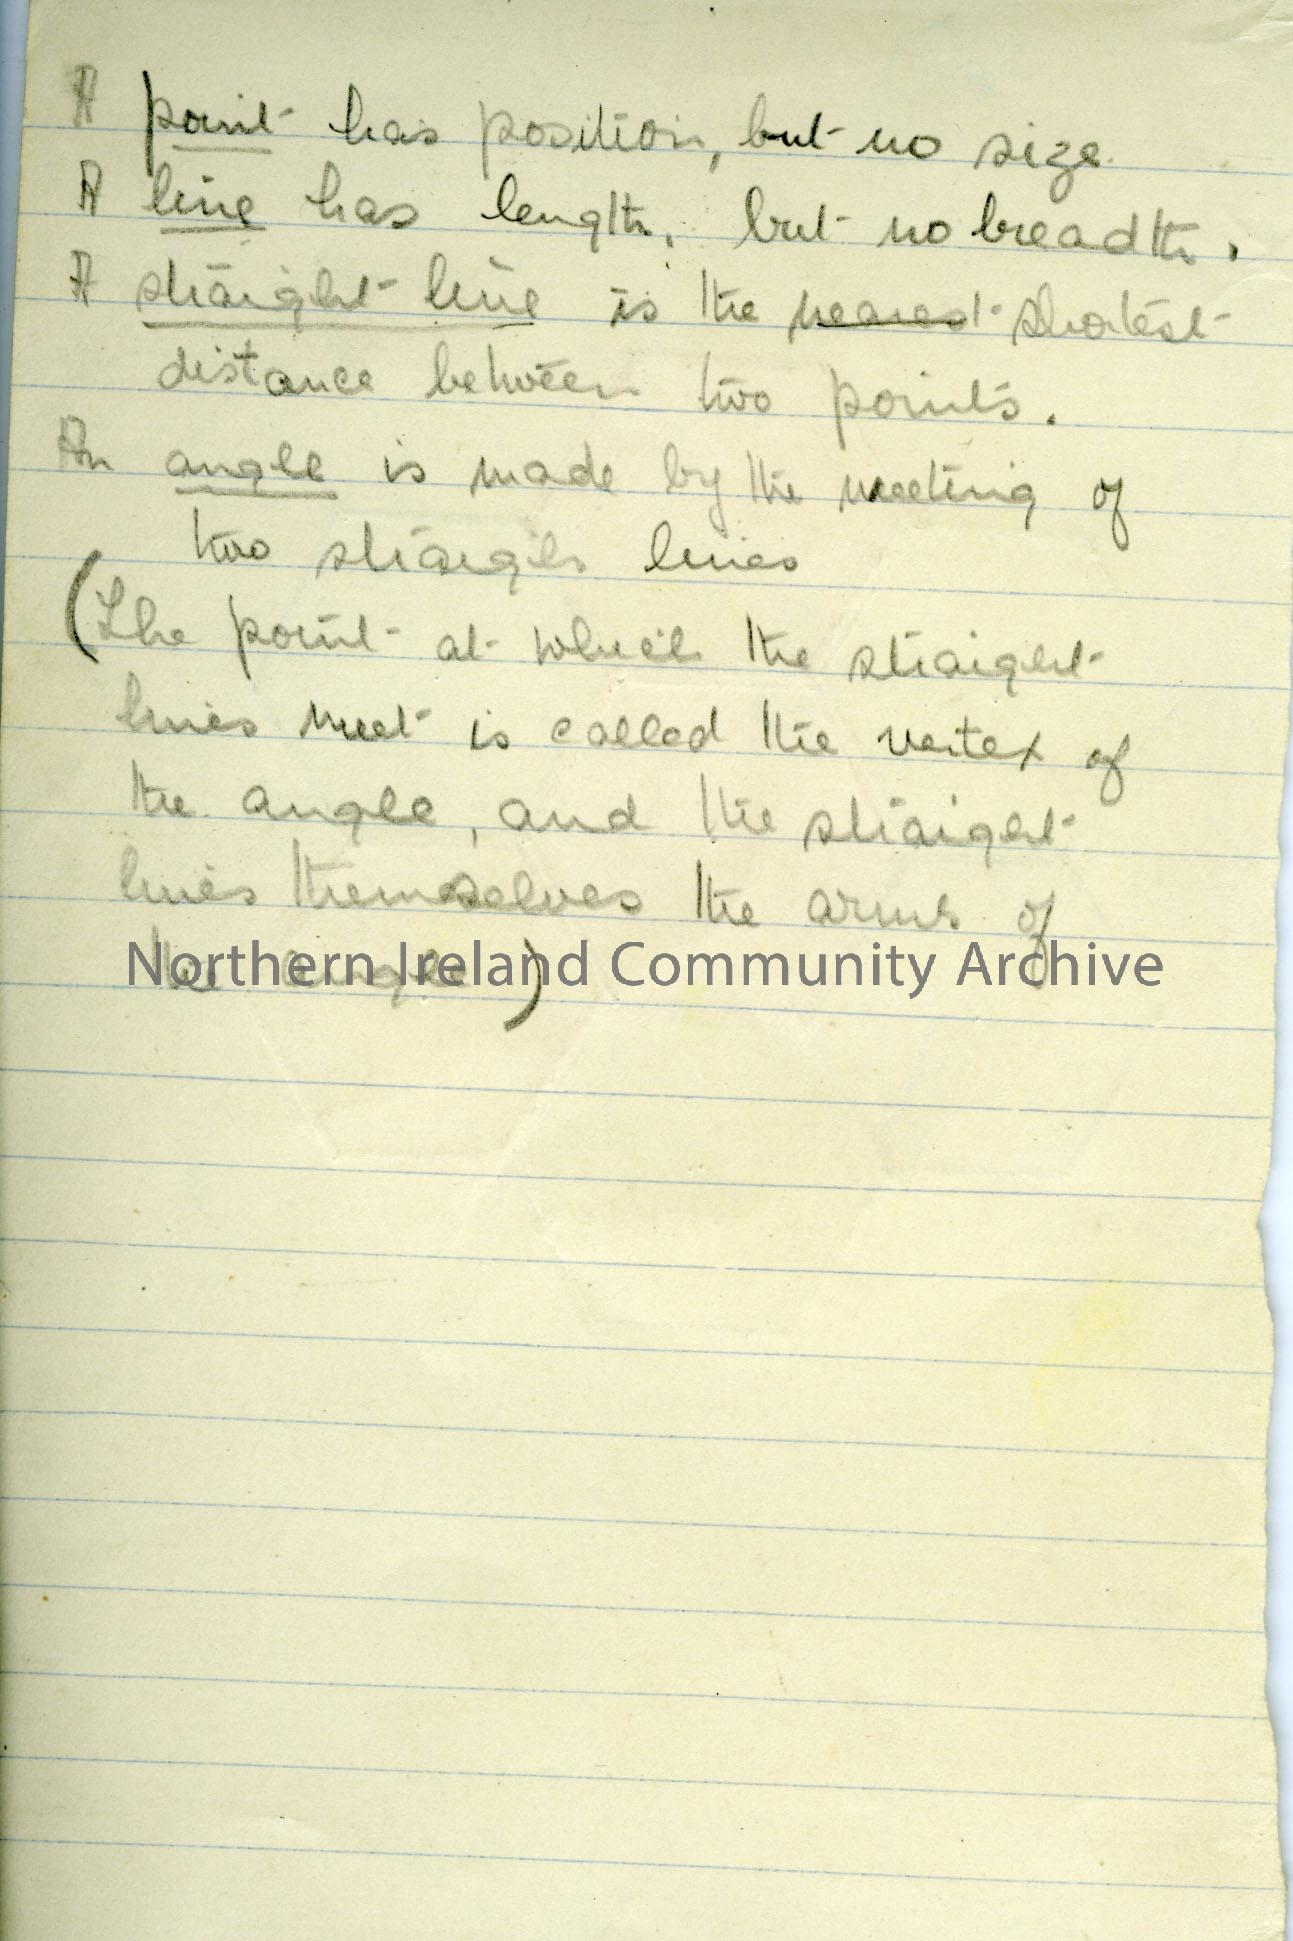 A point has position, but no size.
A line has length, but no breadth.
A straight line is the nearest shortest
distance between two points.
An angle is made by the meeting of
two straight lines
(The point at which the straight
lines meet is called the vertex of
the angle, and the straight
lines themselves the arms of
the angle)
Northern Ireland Community Archive